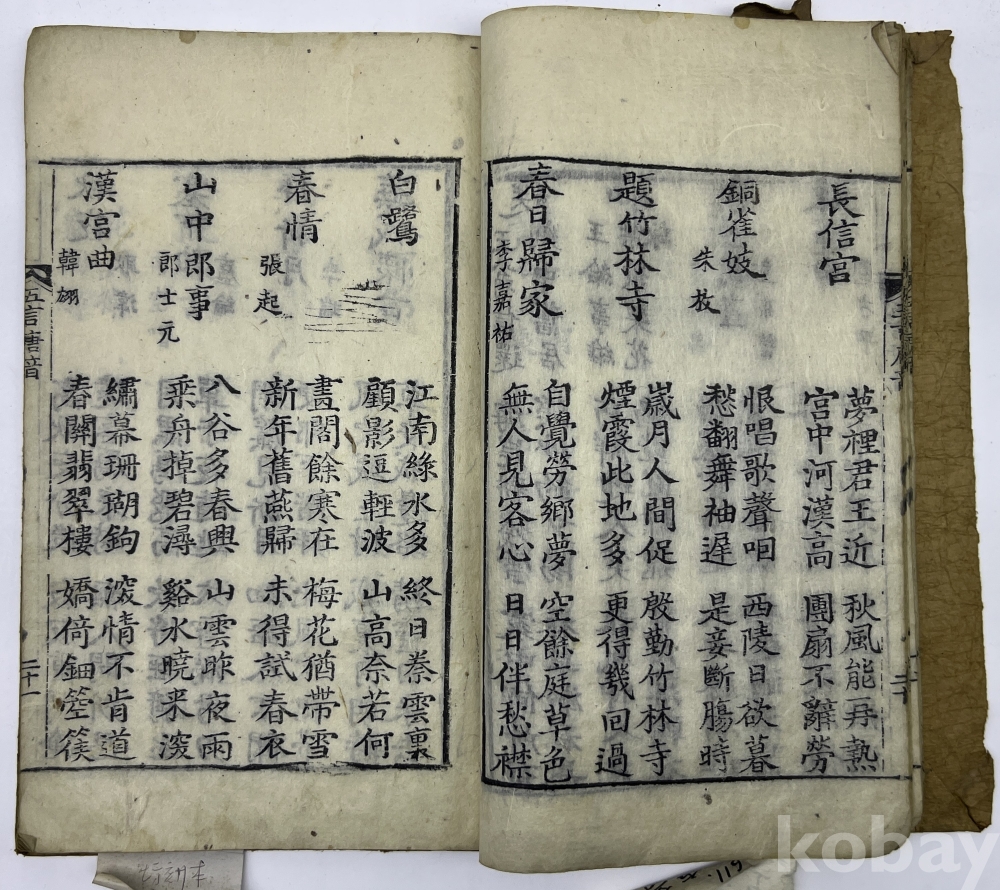 長信宮
夢裡君王近
宮中河漢高
秋風能再熱
團扇不辭勞
銅雀妓
朱放
恨唱歌聲咽
愁翻舞袖遲
西陵日欲暮
是妾斷膓時
題竹林寺
歲月人間促
煙霞此地多
殷勤竹林寺
更得幾回過
春日歸家
李嘉祐
自覺勞鄉夢
無人見客心
空餘庭草色
日日伴愁襟
白鷺
江南綠水多
顧影逗輕波
終日秦雲裏
山高奈若何
春情
張起
畫閣餘寒在
新年舊燕歸
梅花猶帶雪
未得試春衣
山中郎事
郎士元
八谷多春興
乘舟掉碧潯
山雲昨夜雨
谿水曉来深
漢宮曲
韓翃
繡幕珊瑚鉤
春關翡翠樓
深情不肯道
嬌倚鈿箜篌
五言唐音
二十一
kobay